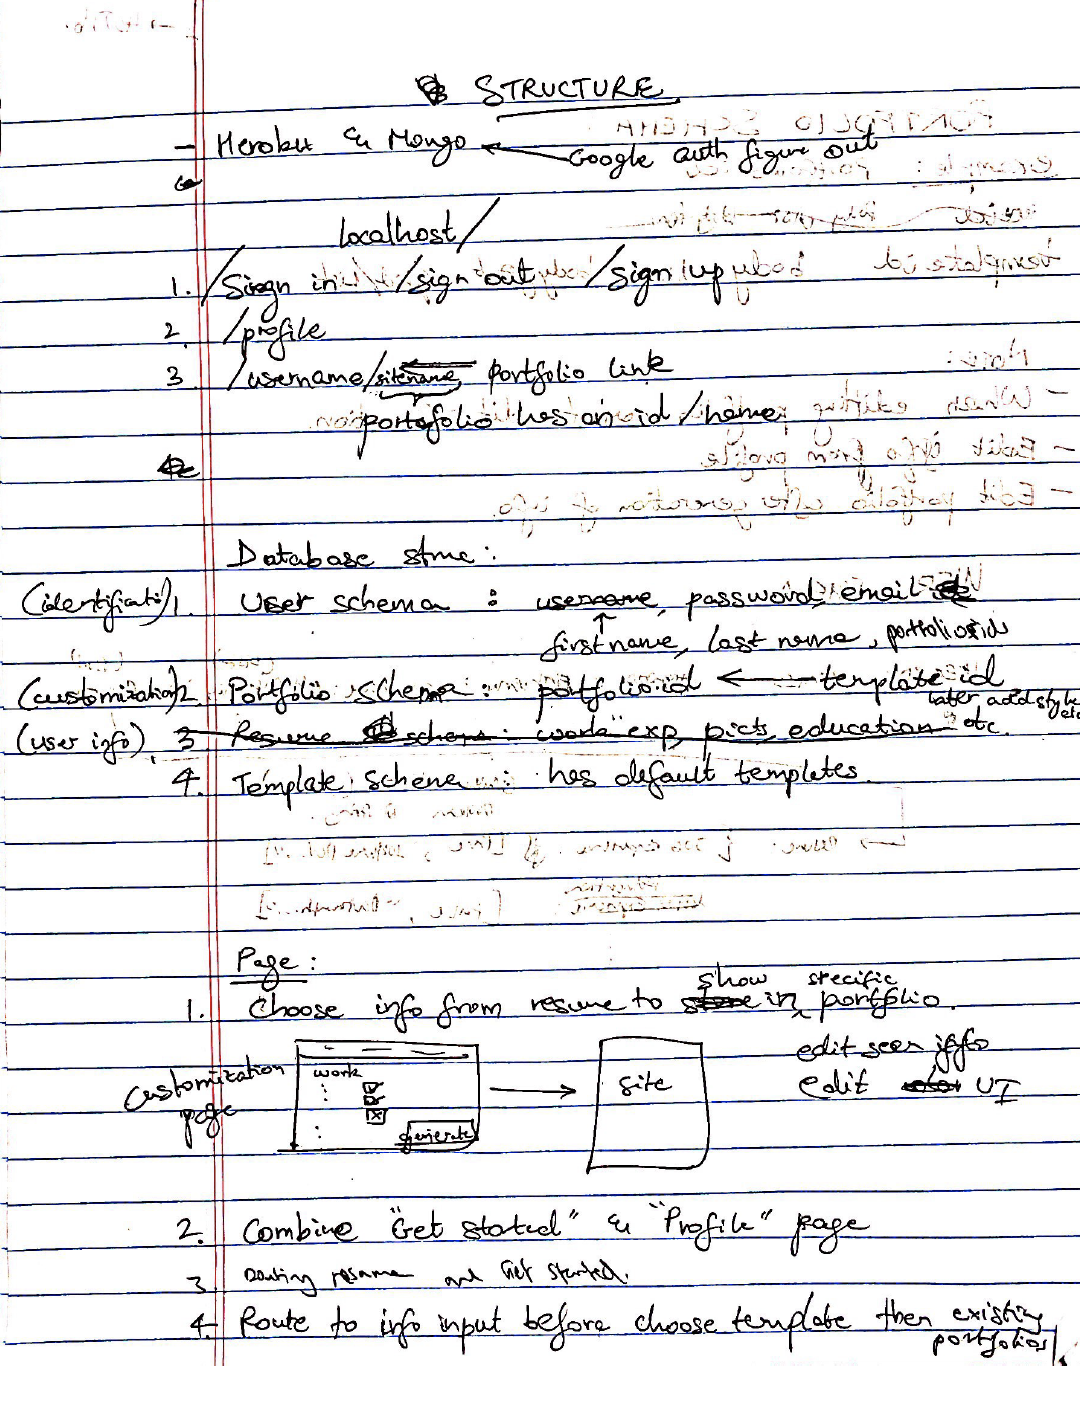 STRUCTURE
- Heroku & Mongo ← Google auth figure out
localhost/
1. /Sign in /sign out /sign up
2. /profile
3 /username/sitename portfolio link
portofolio has an id/name
Database struc:
(identificati) 1. User schema : username, password, email
firstname, last name, portfolio id
(customization) 2. Portfolio schema : portfolio id ← template id
later add style etc
(user info) 3 Resume schema: work exp, picts, education etc.
4. Template schema : has default templates.
Page:
show specific
1. Choose info from resume to store in portfolio.
edit seen info
edit UI
Customization page
work
generate
site
2. Combine "Get started" & "Profile" page
3. resume and Get Started.
4 Route to info input before choose template then existing
portfolios